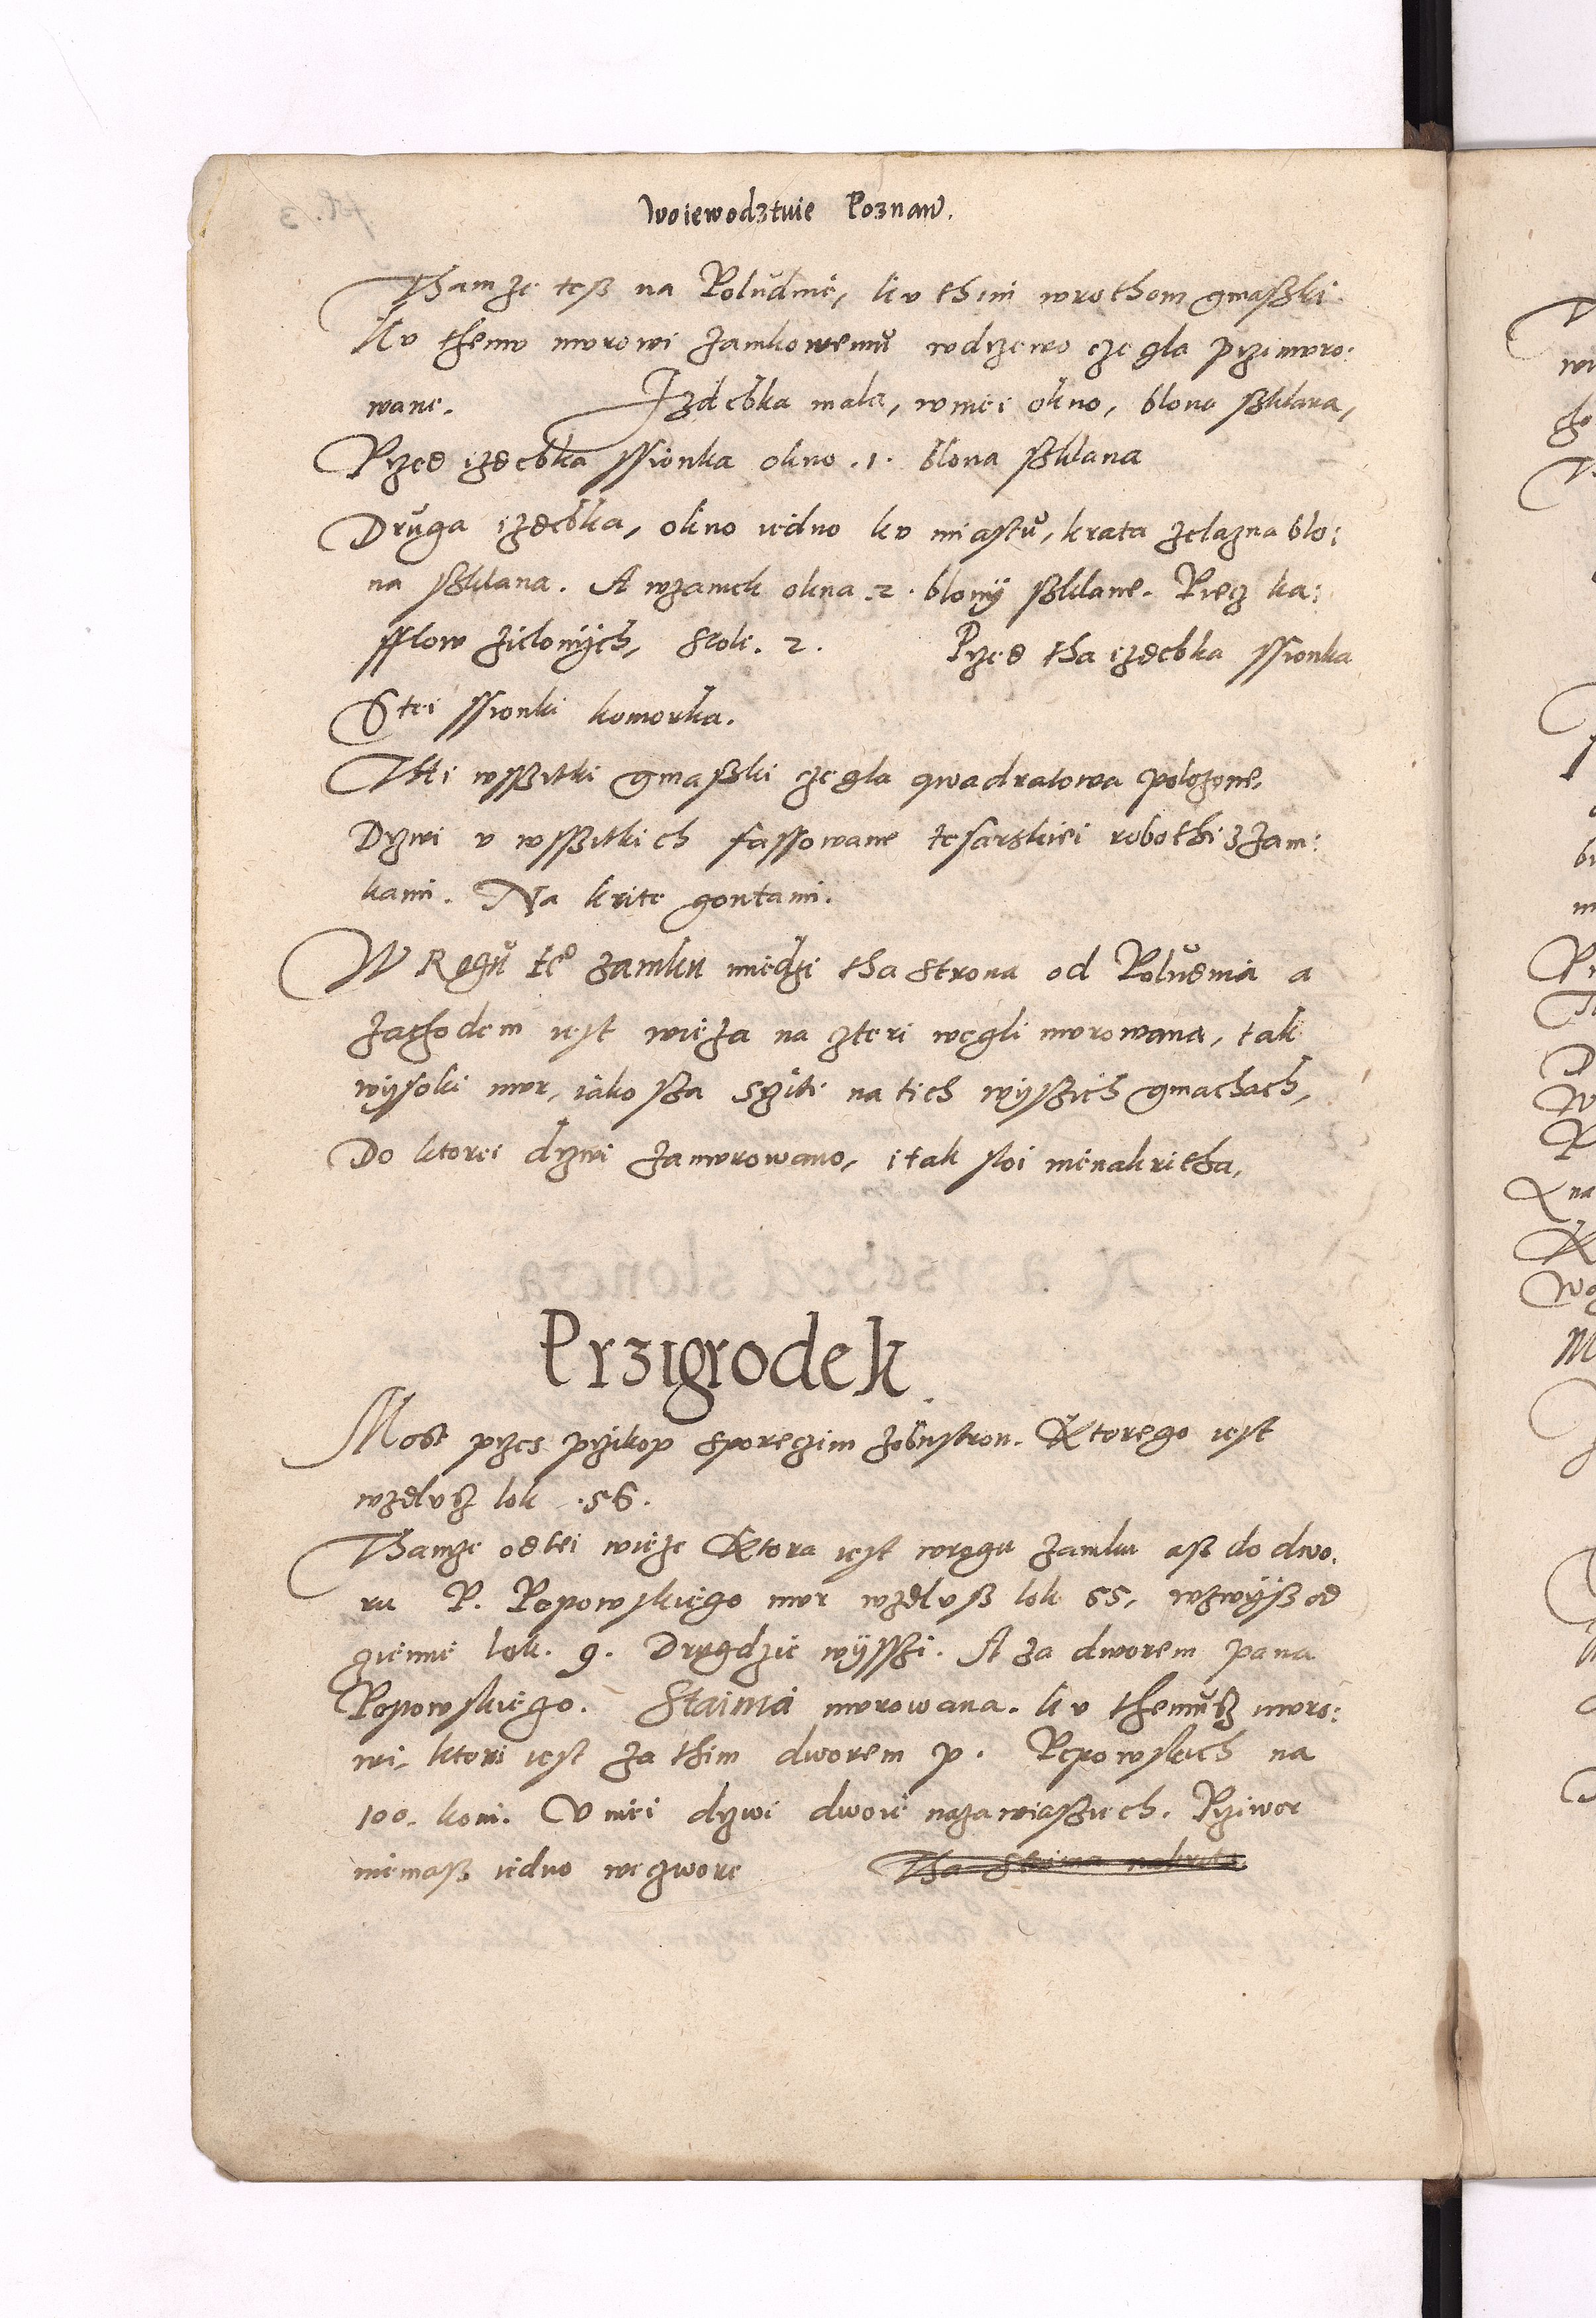 Woiewodztwie Poznan̄.
Thamże tesz na Poludnie, ku thim wrothom gmaszki
Ku themu murowi zamkowemu wdrzewo czegla przimuro:
wane. Izdebka mala, wniei okno, blona szklana,
Przed izdebka ssionka okno .1. blona szklana
Druga izdebka, okno iedno ku miastu, krata zelazna blo:
na szklana. A wzamek okna .2. blony szklane. Piecz ka:
fflow zielonych, stoli. 2. Przed tha izdebka ssionka
S tei ssionki komorka.
Thi wsszitki gmaszki czegla quadratowa polozone,
Drzwi v wsszitkich fassowane tesarskiei robothi zzam:
kami. Na krite gontami.
W Rogu te° zamku miedzi tha strona od Poludnia a
zachodem iest wieza na czteri wegli murowana, tak
wysoki mur, iako sza sczite na tich wyszich gmachach,
Do ktorei drzwi zamurowano, i tak stoi nienakritha,
Przigrodek
Most przes przikop sporeczim zobustron. Ktorego iest
wzdlusz lok .56.
Thamze odtei wieze Ktora iest wrogu zamku asz do dwo,
ru P. Popowskiego mur wzdlusz lok 55, wzwysz od
ziemie lok. 9. Drugdzie wysszi. A za dworem pana
Popowskiego. Stainia murowana. ku themusz muro:
wi, ktori iest za thim dworem p. Popowskich na
100. koni. V niei drzwi dwoie nazawiasziech. Prziwor
niemasz iedno weczwore
Tha Stainia nakrita.